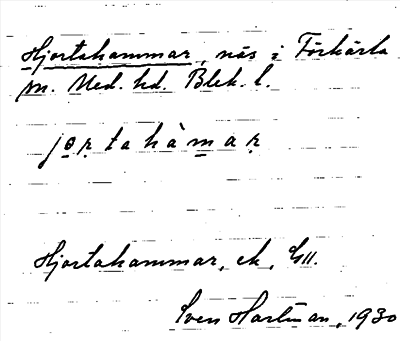 Hjortahammar, näs i Förkärla
sn. Med. hd. Blek. l.
jo̲ṛtahàm̲aṛ
Hjortahammar, ek.
Sven Hartman, 1930